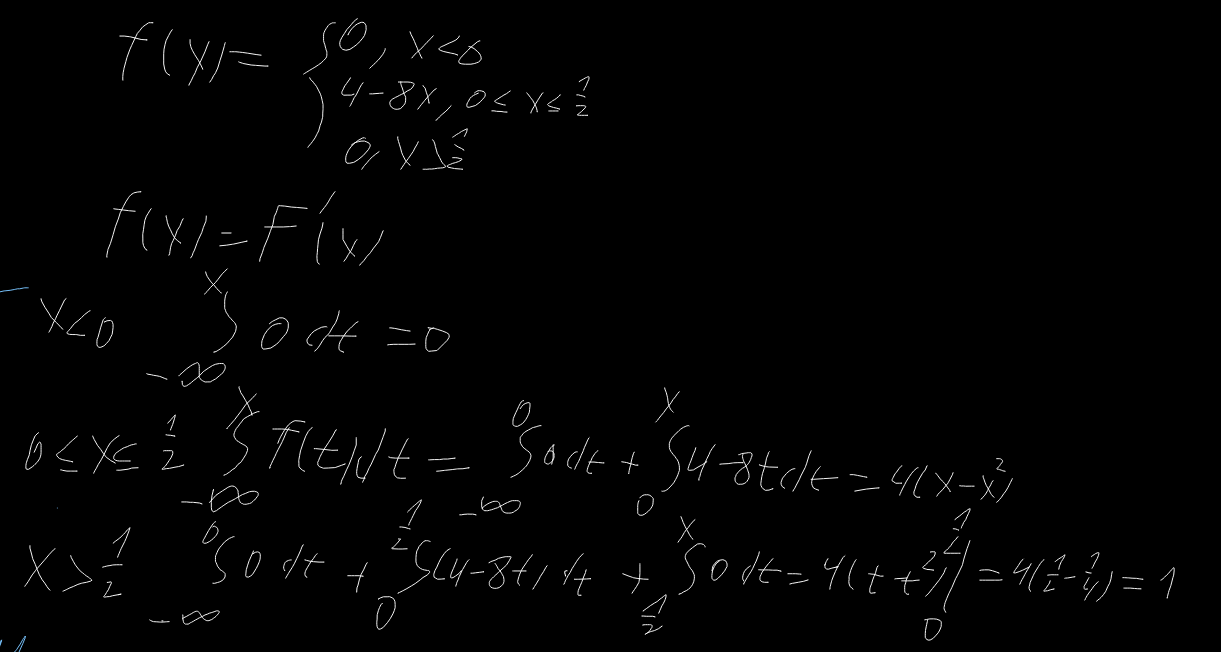 f(x) = { 0, x < 0
4 - 8x, 0 ≤ x ≤ 1/2
0, x > 1/2
f(x) = F'(x)
x < 0 ∫_{-∞}^{x} 0 dt = 0
0 ≤ x ≤ 1/2 ∫_{-∞}^{x} f(t) dt = ∫_{-∞}^{0} 0 dt + ∫_{0}^{x} 4 - 8t dt = 4(x - x²)
x > 1/2 ∫_{-∞}^{0} 0 dt + ∫_{0}^{1/2} (4 - 8t) dt + ∫_{1/2}^{x} 0 dt = 4(t + t²)|_{0}^{1/2} = 4(1/2 - 1/4) = 1